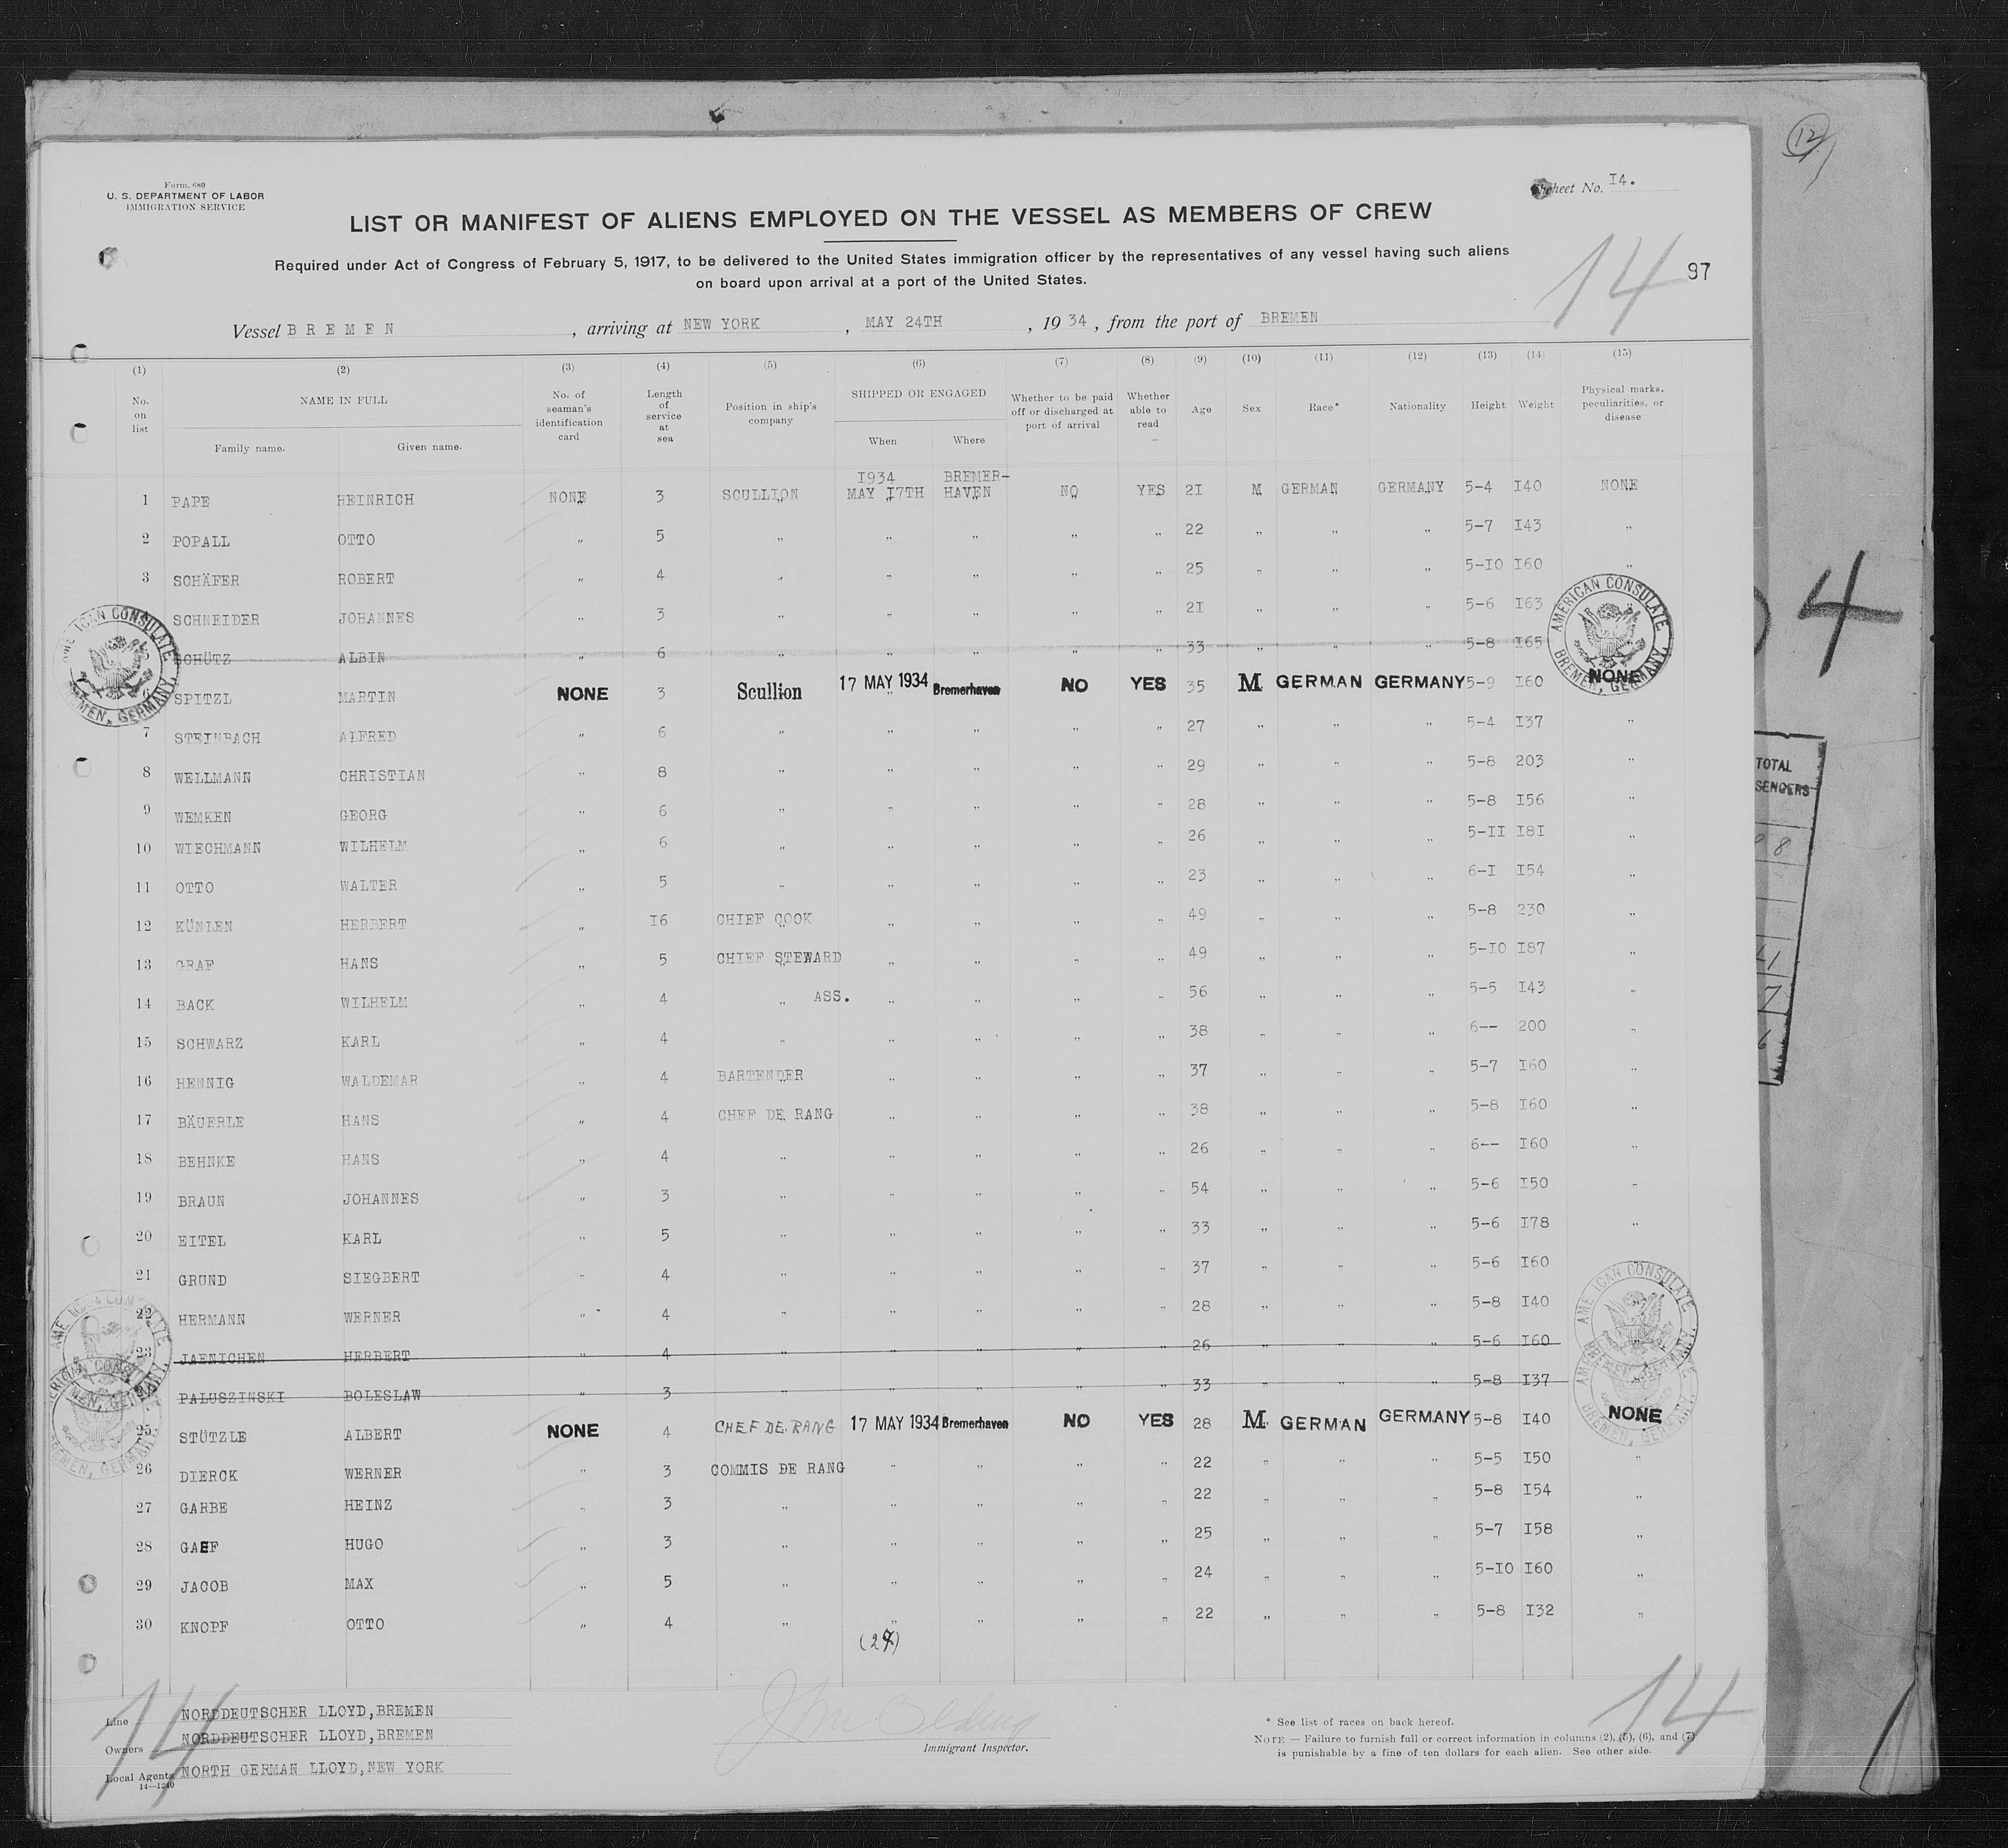 12
Form 680
U. S. DEPARTMENT OF LABOR
IMMIGRATION SERVICE
Sheet No. I4.
LIST OR MANIFEST OF ALIENS EMPLOYED ON THE VESSEL AS MEMBERS OF CREW
Required under Act of Congress of February 5, 1917, to be delivered to the United States immigration officer by the representatives of any vessel having such aliens
on board upon arrival at a port of the United States.
14 97
Vessel BREMEN , arriving at NEW YORK , MAY 24TH , 1934 , from the port of BREMEN
(1) (2) (3) (4) (5) (6) (7) (8) (9) (10) (11) (12) (13) (14) (15)
No. on list NAME IN FULL Family name. Given name. No. of seaman's identification card Length of service at sea Position in ship's company SHIPPED OR ENGAGED When Where Whether to be paid off or discharged at port of arrival Whether able to read Age Sex Race* Nationality Height Weight Physical marks, peculiarities, or disease
I934 BREMER-
1 PAPE HEINRICH NONE 3 SCULLION MAY I7TH HAVEN NO YES 2I M GERMAN GERMANY 5-4 I40 NONE
2 POPALL OTTO " 5 " " " " " 22 " " " 5-7 I43 "
3 SCHÄFER ROBERT " 4 " " " " " 25 " " " 5-IO I60 "
SCHNEIDER JOHANNES " 3 " " " " " 2I " " " 5-6 I63
SCHÜTZ ALBIN " 6 " " " " " 33 " " " 5-8 I65
6 SPITZL MARTIN NONE 3 Scullion 17 MAY 1934 Bremerhaven NO YES 35 M GERMAN GERMANY 5-9 I60 NONE
7 STEINBACH ALFRED " 6 " " " " " 27 " " " 5-4 I37 "
8 WELLMANN CHRISTIAN " 8 " " " " " 29 " " " 5-8 203 "
9 WEMKEN GEORG " 6 " " " " " 28 " " " 5-8 I56 "
10 WIECHMANN WILHELM " 6 " " " " " 26 " " " 5-II I8I "
11 OTTO WALTER " 5 " " " " " 23 " " " 6-I I54 "
12 KÜNLEN HERBERT " I6 CHIEF COOK " " " " 49 " " " 5-8 230 "
13 GRAF HANS " 5 CHIEF STEWARD " " " " 49 " " " 5-IO I87 "
14 BACK WILHELM " 4 " ASS. " " " " 56 " " " 5-5 I43 "
15 SCHWARZ KARL " 4 " " " " " 38 " " " 6-- 200 "
16 HENNIG WALDEMAR " 4 BARTENDER " " " " 37 " " " 5-7 I60 "
17 BÄUERLE HANS " 4 CHEF DE RANG " " " " 38 " " " 5-8 I60 "
18 BEHNKE HANS " 4 " " " " " 26 " " " 6-- I60 "
19 BRAUN JOHANNES " 3 " " " " " 54 " " " 5-6 I50 "
20 EITEL KARL " 5 " " " " " 33 " " " 5-6 I78 "
21 GRUND SIEGBERT " 4 " " " " " 37 " " " 5-6 I60
22 HERMANN WERNER " 4 " " " " " 28 " " " 5-8 I40
23 JAENICHEN HERBERT " 4 " " " " " 26 " " " 5-6 I60
PALUSZINSKI BOLESLAW " 3 " " " " " 33 " " " 5-8 I37
25 STÜTZLE ALBERT NONE 4 CHEF DE RANG 17 MAY 1934 Bremerhaven NO YES 28 M GERMAN GERMANY 5-8 I40 NONE
26 DIERCK WERNER " 3 COMMIS DE RANG " " " " 22 " " " 5-5 I50 "
27 GARBE HEINZ " 3 " " " " " 22 " " " 5-8 I54 "
28 GAEF HUGO " 3 " " " " " 25 " " " 5-7 I58 "
29 JACOB MAX " 5 " " " " " 24 " " " 5-IO I60 "
30 KNOPF OTTO " 4 " " " " " 22 " " " 5-8 I32 "
(27)
AMERICAN CONSULATE BREMEN, GERMANY.
AMERICAN CONSULATE BREMEN, GERMANY.
AMERICAN CONSULATE
BREMEN, GERMANY.
AMERICAN CONSULATE
BREMEN, GERMANY.
4
TOTAL
14 14
Line NORDDEUTSCHER LLOYD,BREMEN
Owners NORDDEUTSCHER LLOYD,BREMEN
Local Agents NORTH GERMAN LLOYD,NEW YORK
14—1240
Immigrant Inspector.
* See list of races on back hereof.
NOTE — Failure to furnish full or correct information in columns (2), (5), (6), and (7)
is punishable by a fine of ten dollars for each alien. See other side.